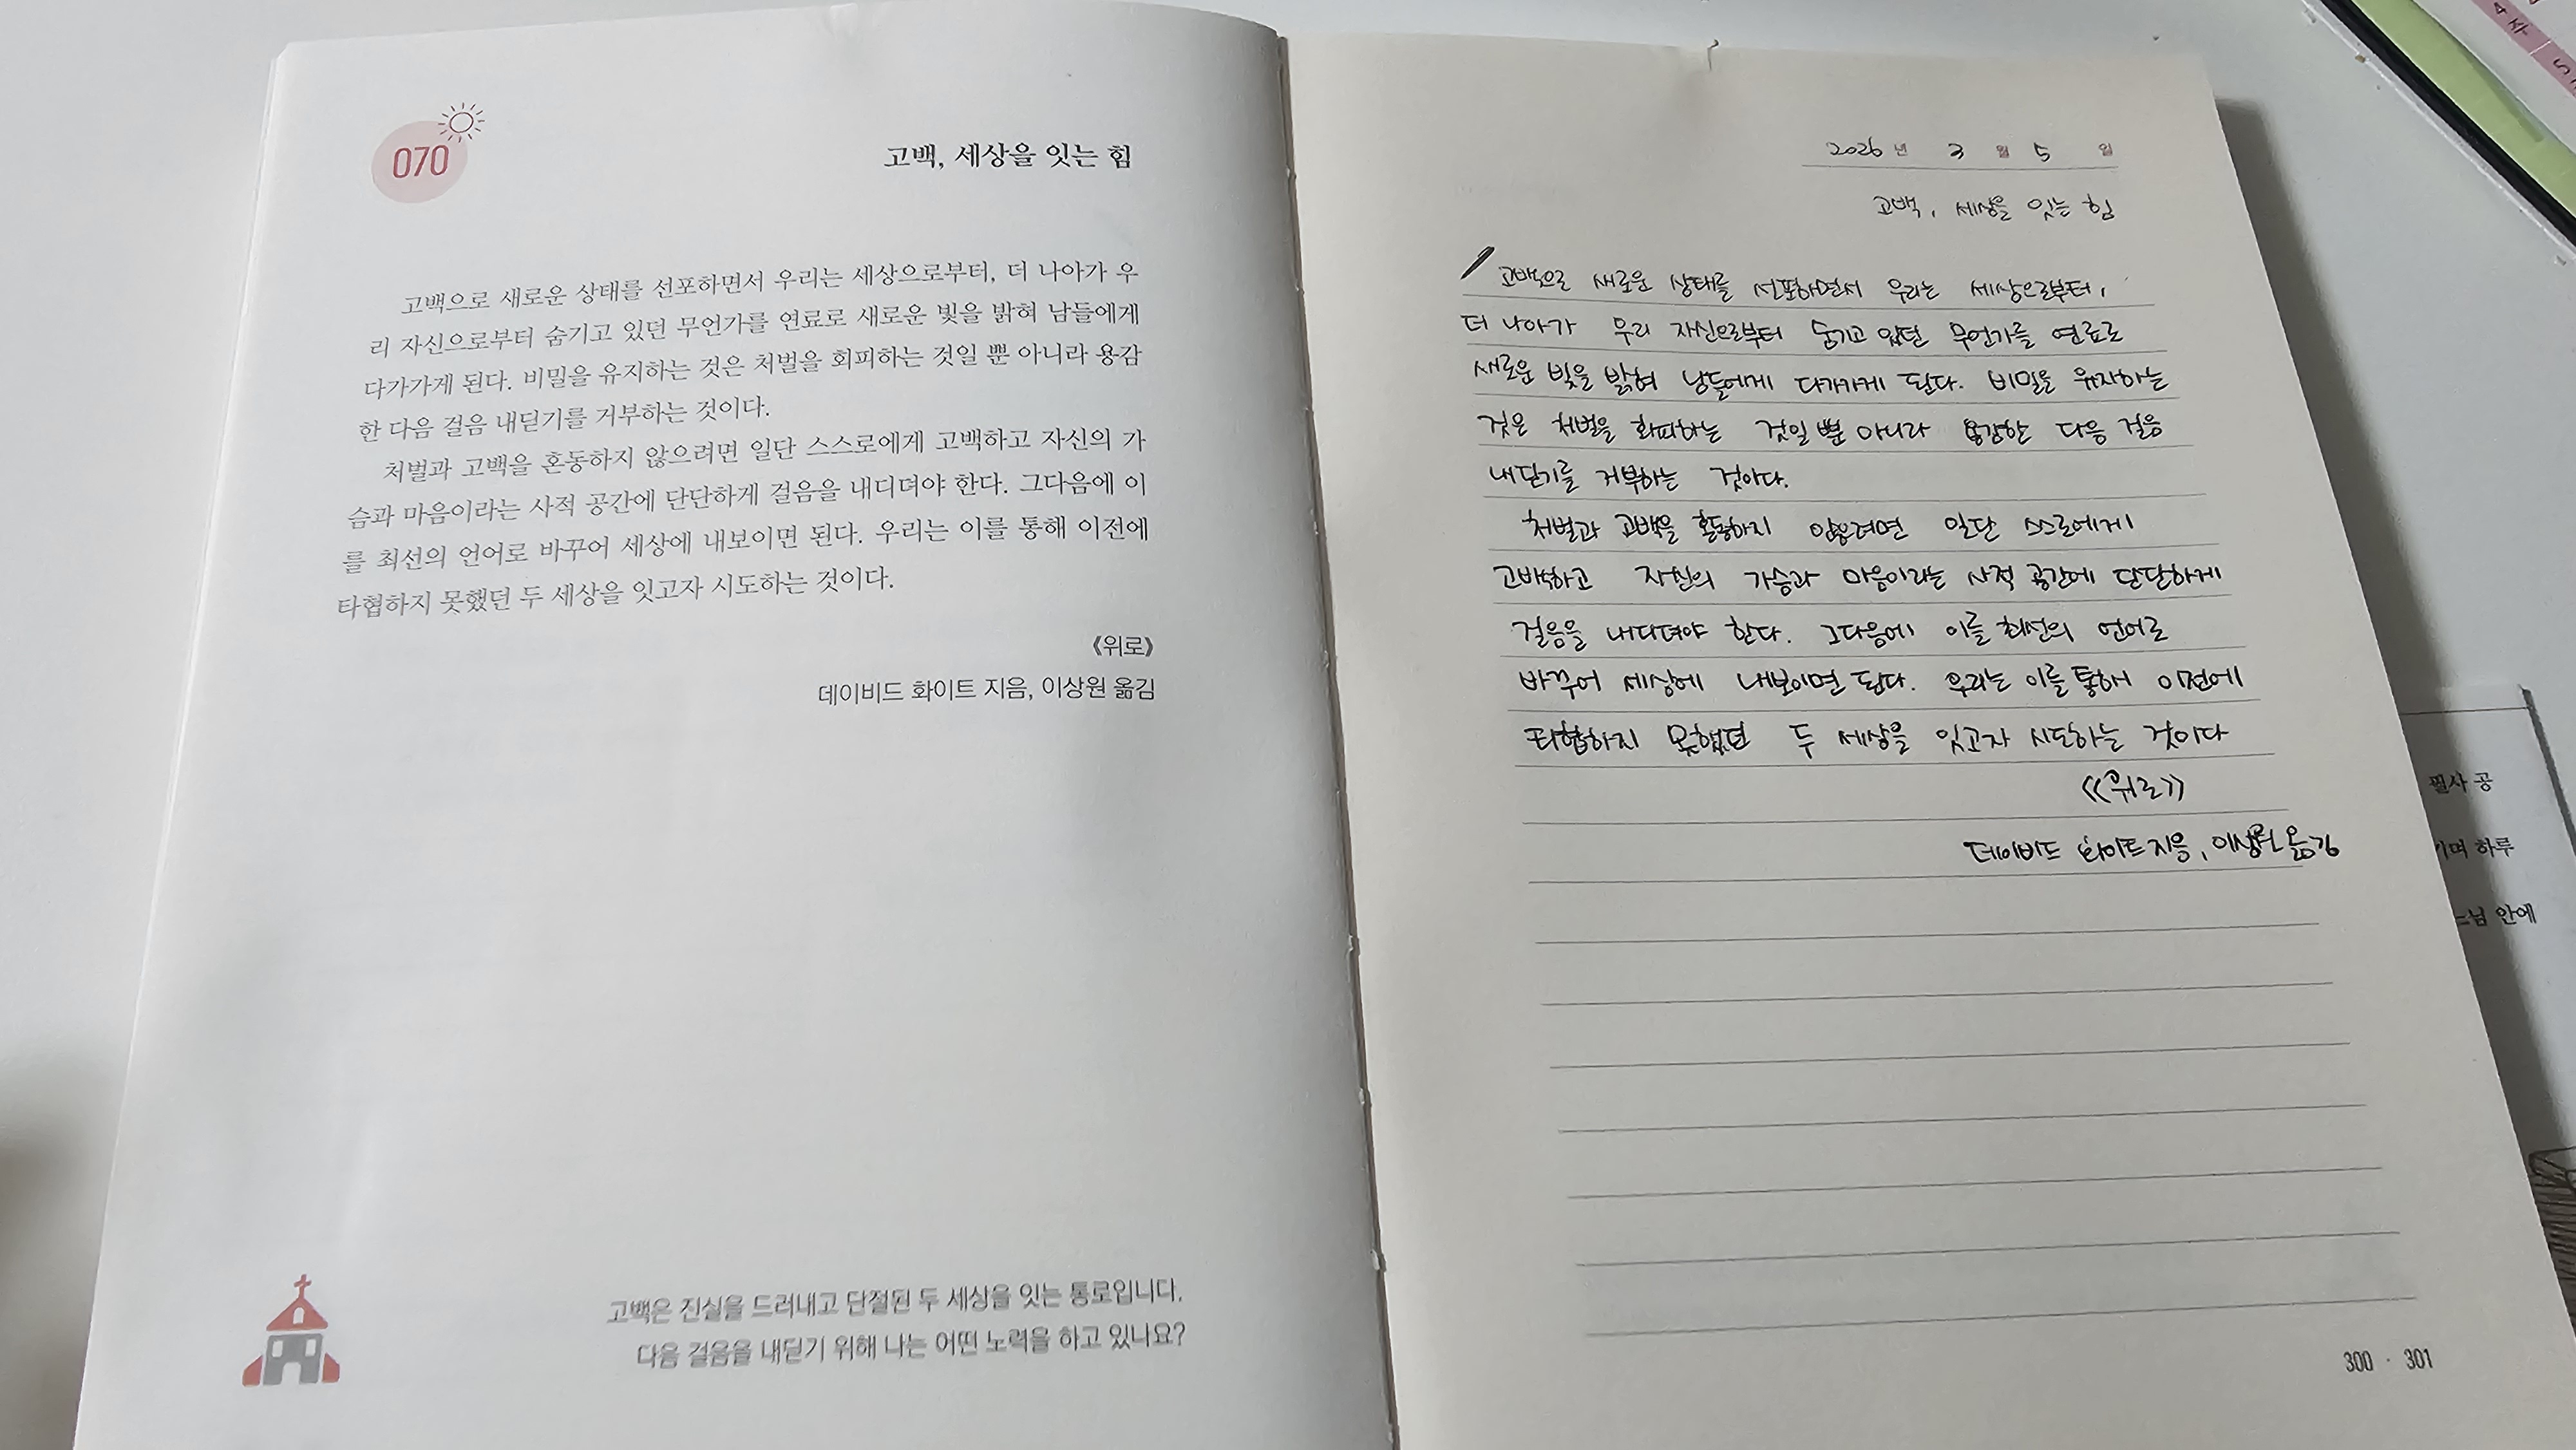 070
고백, 세상을 잇는 힘
고백으로 새로운 상태를 선포하면서 우리는 세상으로부터, 더 나아가 우
리 자신으로부터 숨기고 있던 무언가를 연료로 새로운 빛을 밝혀 남들에게
다가가게 된다. 비밀을 유지하는 것은 처벌을 회피하는 것일 뿐 아니라 용감
한 다음 걸음 내딛기를 거부하는 것이다.
처벌과 고백을 혼동하지 않으려면 일단 스스로에게 고백하고 자신의 가
슴과 마음이라는 사적 공간에 단단하게 걸음을 내디뎌야 한다. 그다음에 이
를 최선의 언어로 바꾸어 세상에 내보이면 된다. 우리는 이를 통해 이전에
타협하지 못했던 두 세상을 잇고자 시도하는 것이다.
《위로》
데이비드 화이트 지음, 이상원 옮김
고백은 진실을 드러내고 단절된 두 세상을 잇는 통로입니다.
다음 걸음을 내딛기 위해 나는 어떤 노력을 하고 있나요?
2026 년 3 월 5 일
고백, 세상을 잇는 힘
고백으로 새로운 상태를 선포하면서 우리는 세상으로부터,
더 나아가 우리 자신으로부터 숨기고 있던 무언가를 연료로
새로운 빛을 밝혀 남들에게 다가가게 된다. 비밀을 유지하는
것은 처벌을 회피하는 것일 뿐 아니라 용감한 다음 걸음
내딛기를 거부하는 것이다.
처벌과 고백을 혼동하지 않으려면 일단 스스로에게
고백하고 자신의 가슴과 마음이라는 사적 공간에 단단하게
걸음을 내디뎌야 한다. 그다음에 이를 최선의 언어로
바꾸어 세상에 내보이면 된다. 우리는 이를 통해 이전에
타협하지 못했던 두 세상을 잇고자 시도하는 것이다
《위로》
데이비드 화이트 지음, 이상원 옮김
300 · 301
4주
필사 공
며 하루
느님 안에